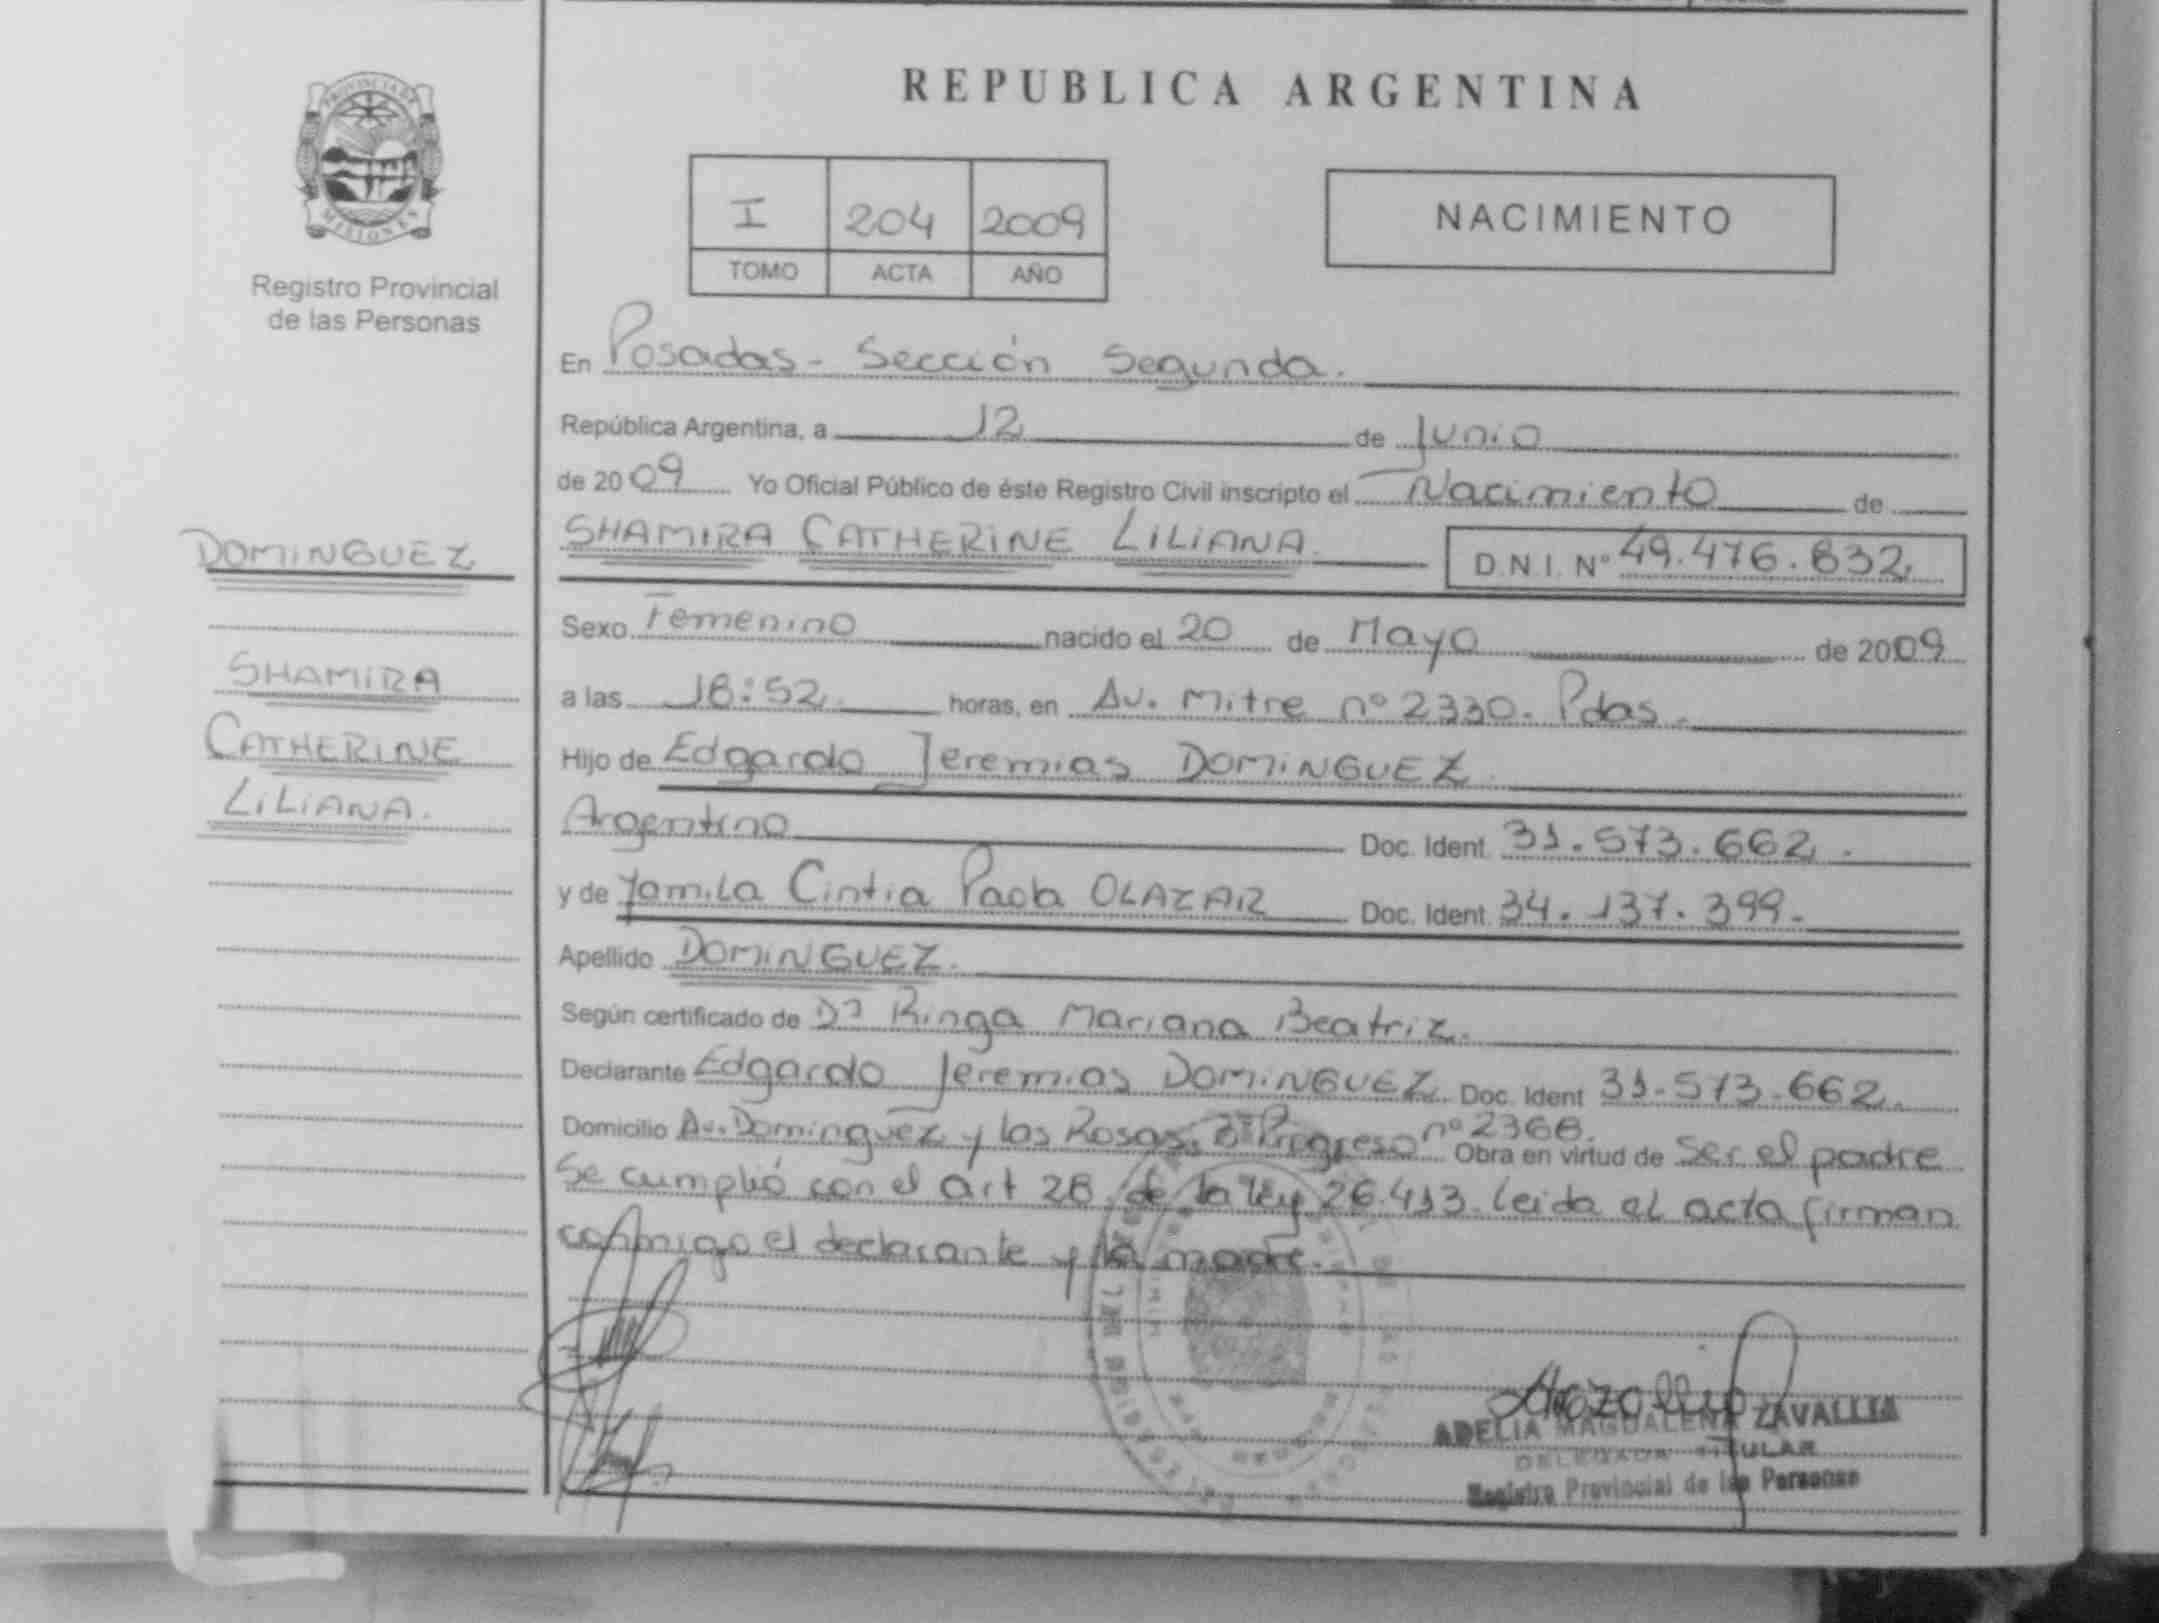 PROVINCIA DE
MISIONES
Registro Provincial
de las Personas
DOMINGUEZ
SHAMIRA
CATHERINE
LILIANA.
REPUBLICA ARGENTINA
I 204 2009
TOMO ACTA AÑO
NACIMIENTO
En Posadas - Sección Segunda.
República Argentina, a 12 de Junio
de 2009 Yo Oficial Público de éste Registro Civil inscripto el Nacimiento de
SHAMIRA CATHERINE LILIANA. D.N.I. Nº 49.476.832
Sexo Femenino nacido el 20 de Mayo de 2009
a las 18:52 horas, en Av. Mitre nº 2330. Pdas.
Hijo de Edgardo Jeremias DOMINGUEZ
Argentino Doc. Ident. 31.573.662.
y de Yamila Cintia Paola OLAZAR Doc. Ident. 34.137.399.
Apellido DOMINGUEZ.
Según certificado de Dª Ringa Mariana Beatriz.
Declarante Edgardo Jeremias DOMINGUEZ Doc. Ident 31.573.662.
Domicilio Av. Dominguez y las Rosas. Bº Progreso nº 2368. Obra en virtud de ser el padre
Se cumplió con el art 28 de la ley 26.413. leida el acta firman
conmigo el declarante y la madre.
ADELIA MAGDALENA ZAVALLIA
DELEGADA TITULAR
Registro Provincial de las Personas